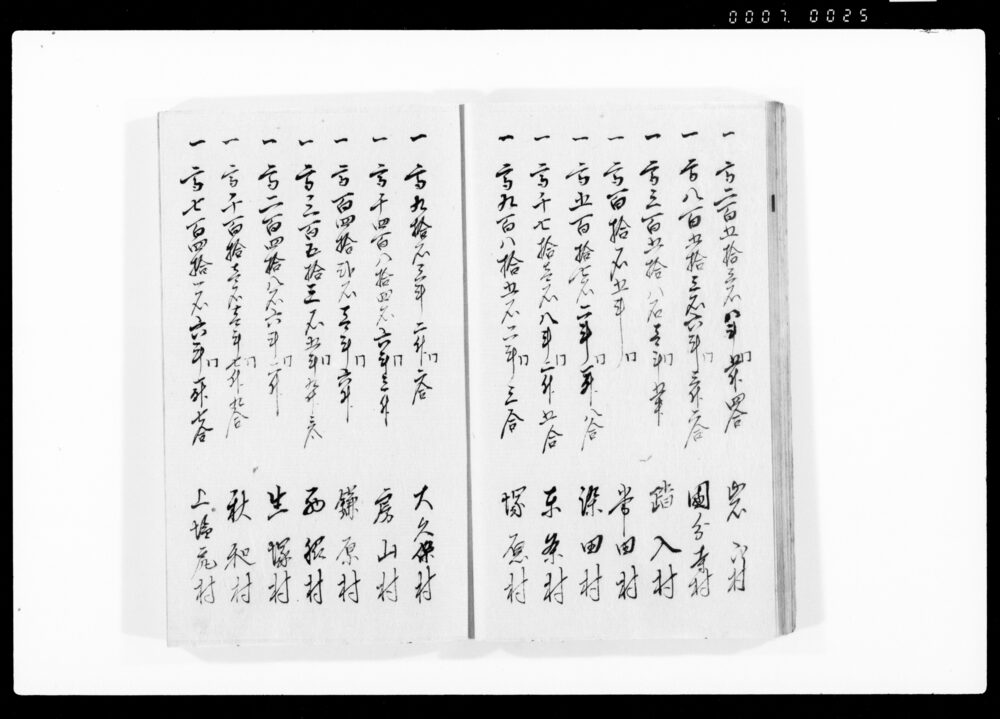 0007. 0025
一 高二百五拾三石八斗 四合 岩下村
一 高八百五拾三石六斗三升六合 國分寺村
一 高三百五拾八石壱斗 踏入村
一 高百拾石五斗 常田村
一 高五百拾七石二斗一升八合 染田村
一 高千七拾壱石八斗二升五合 東条村
一 高九百八拾五石二斗三合 塚原村
一 高九拾石三斗二升六合 大久保村
一 高千四百八拾四石六斗三升 房山村
一 高百四拾弐石壱斗六升 鎌原村
一 高三百五拾三石五斗九升六合 西脇村
一 高二百四拾八石六斗二升 生塚村
一 高千百拾壱石壱斗七升九合 秋和村
一 高七百四拾一石六斗一升七合 上塩尻村